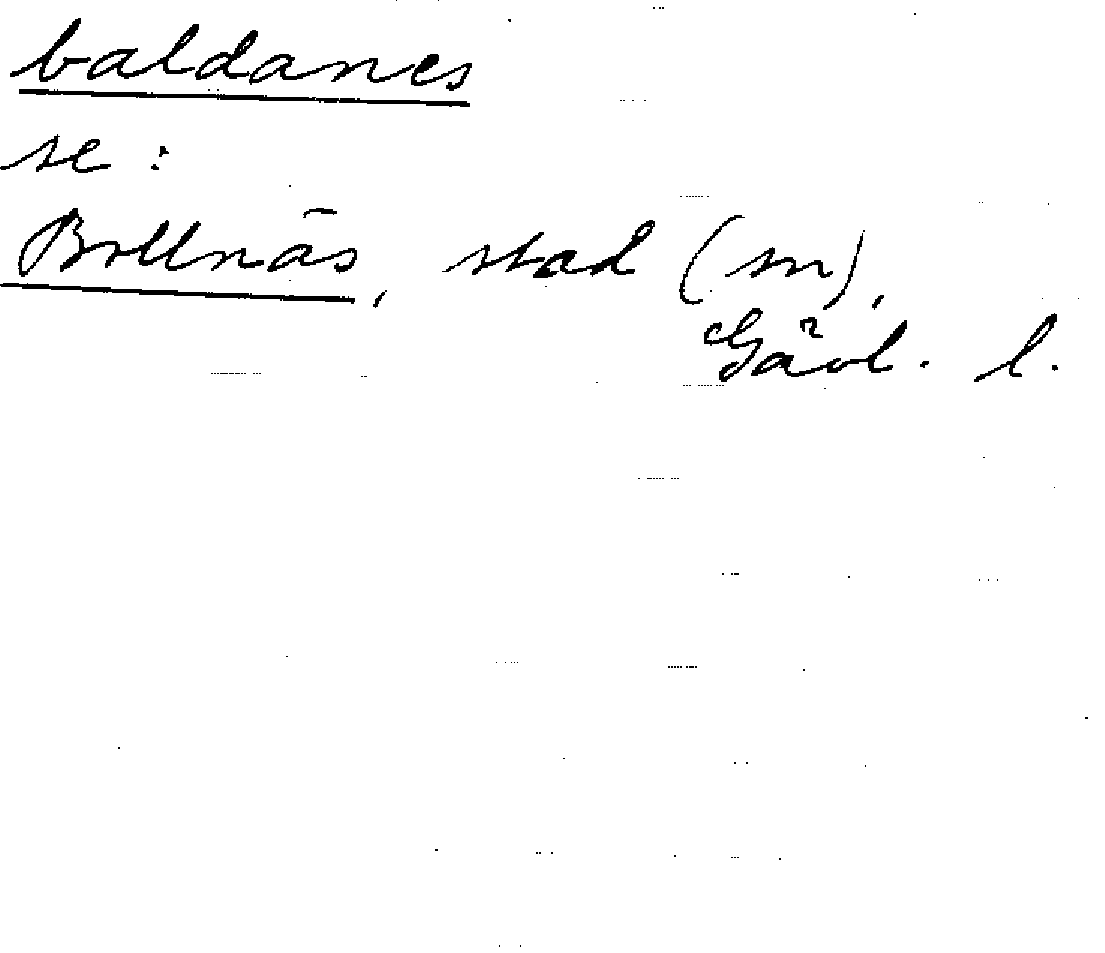 baldanes
se:
Bollnäs, stad (sn),
Gävl. l.